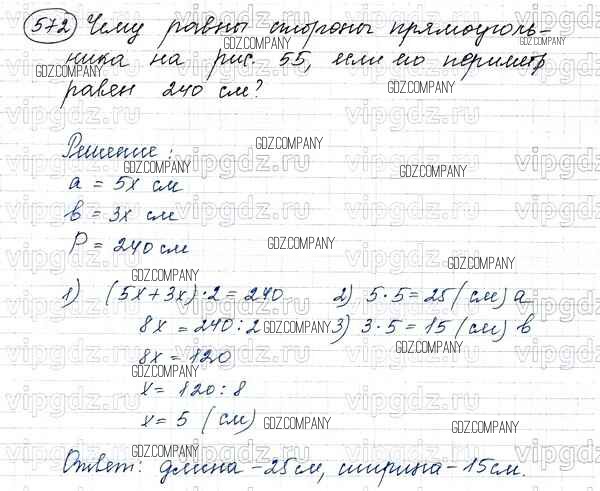 572 Чему равны стороны прямоуголь-
ника на рис. 55, если его периметр
равен 240 см?
Решение:
a = 5x см
в = 3x см
P = 240 см
1) (5x+3x)·2=240
8x = 240:2
8x = 120
x = 120:8
x = 5 (см)
2) 5·5=25 (см) a
3) 3·5=15 (см) в
Ответ: длина -25см, ширина -15см.
GDZ.COMPANY
vipgdz.ru